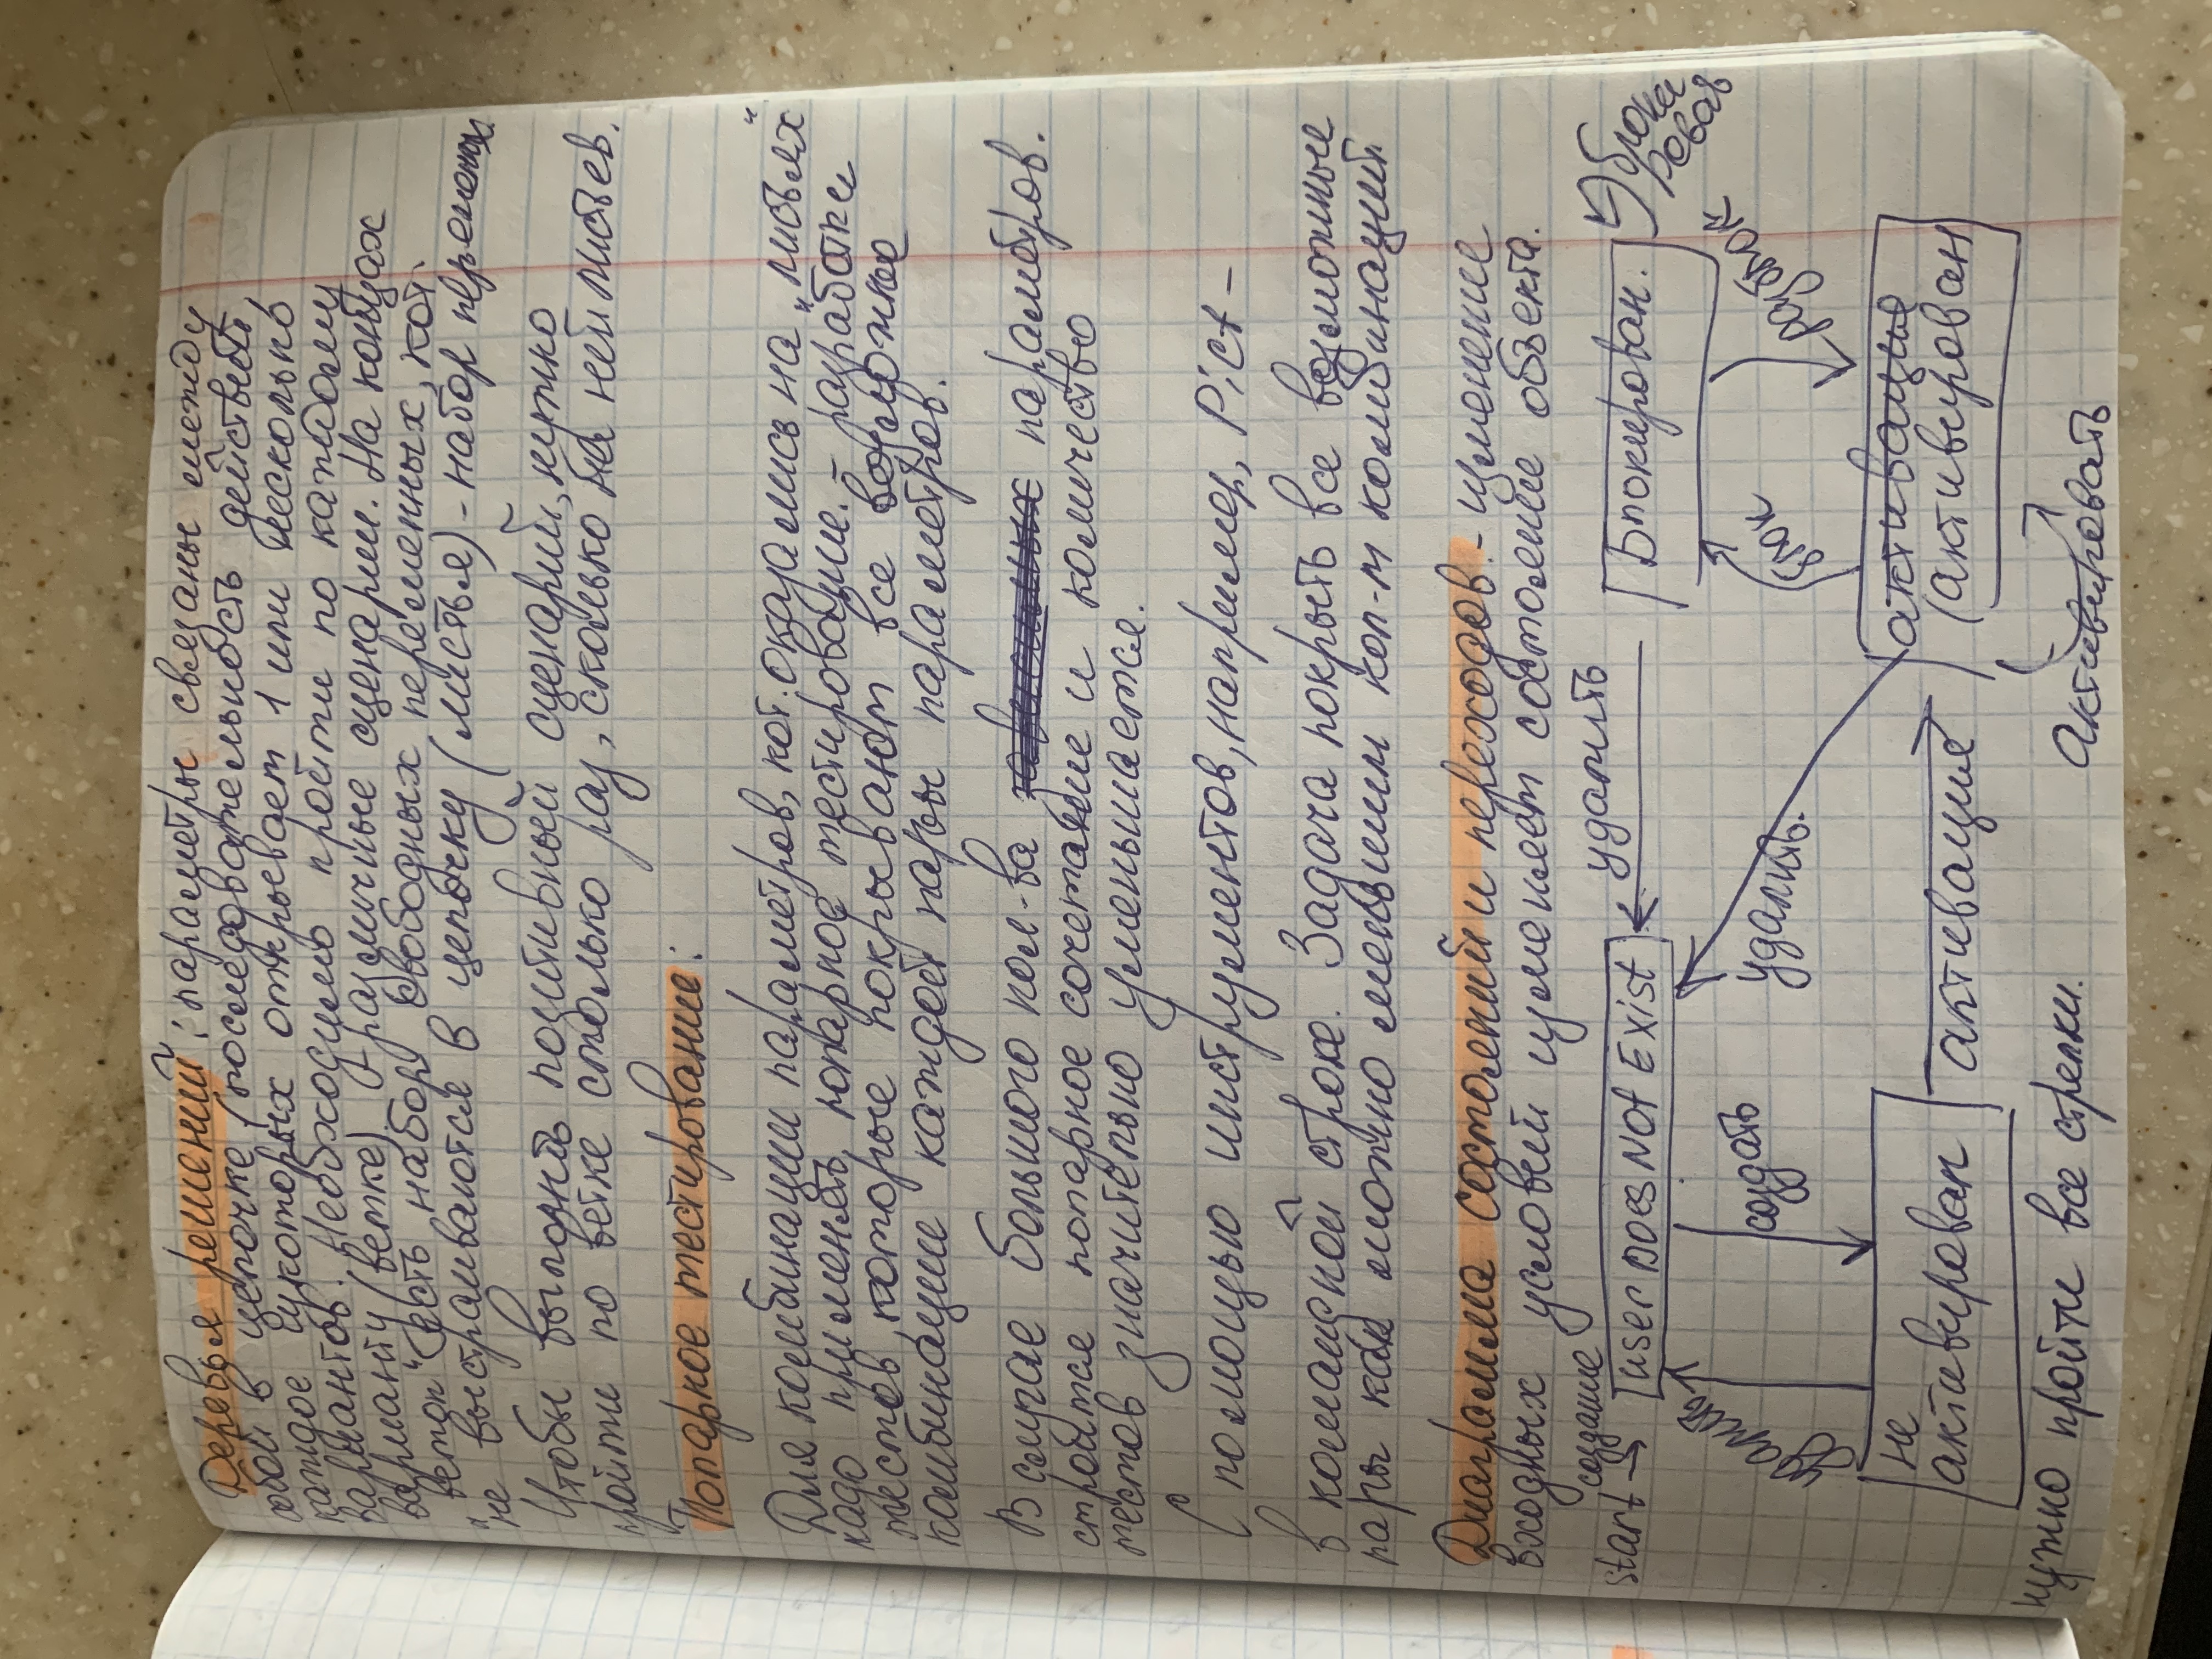 Деревья решений: параметры связаны между
собой в цепочке (последовательность действий,
каждое из которых открывает 1 или несколько
вариантов. Необходимо пройти по каждому
варианту (ветке). - различные сценарии. На концах
„веток“ есть набор свободных переменных, кот.
не выстраиваются в цепочку (листья) - набор переменных.
Чтобы выполнить позитивный сценарий, нужно
пройти по ветке столько раз, сколько на ней листьев.
Попарное тестирование:
Для комбинации параметров, кот. оказались на „листьях“
надо применять попарное тестирование. - разработки
тестов, которые покрывают все возможные
комбинации каждой пары параметров.
В случае большого кол-ва зависимых параметров.
строится попарное сочетание и количество
тестов значительно уменьшается.
С помощью инструментов, например, Pict -
в командной строке. Задача покрыть все возможные
пары как можно меньшим кол-м комбинаций.
Диаграмма состояний и переходов. - изменение
входных условий изменяет состояние объекта.
создание
start → user Does Not Exist
удалить
Блокирован.
блокировать
удалить
создать
удалить.
блок
разблок
не
активирован
активация
активация
(активирован
нужно пройти все стрелки.
Активировать